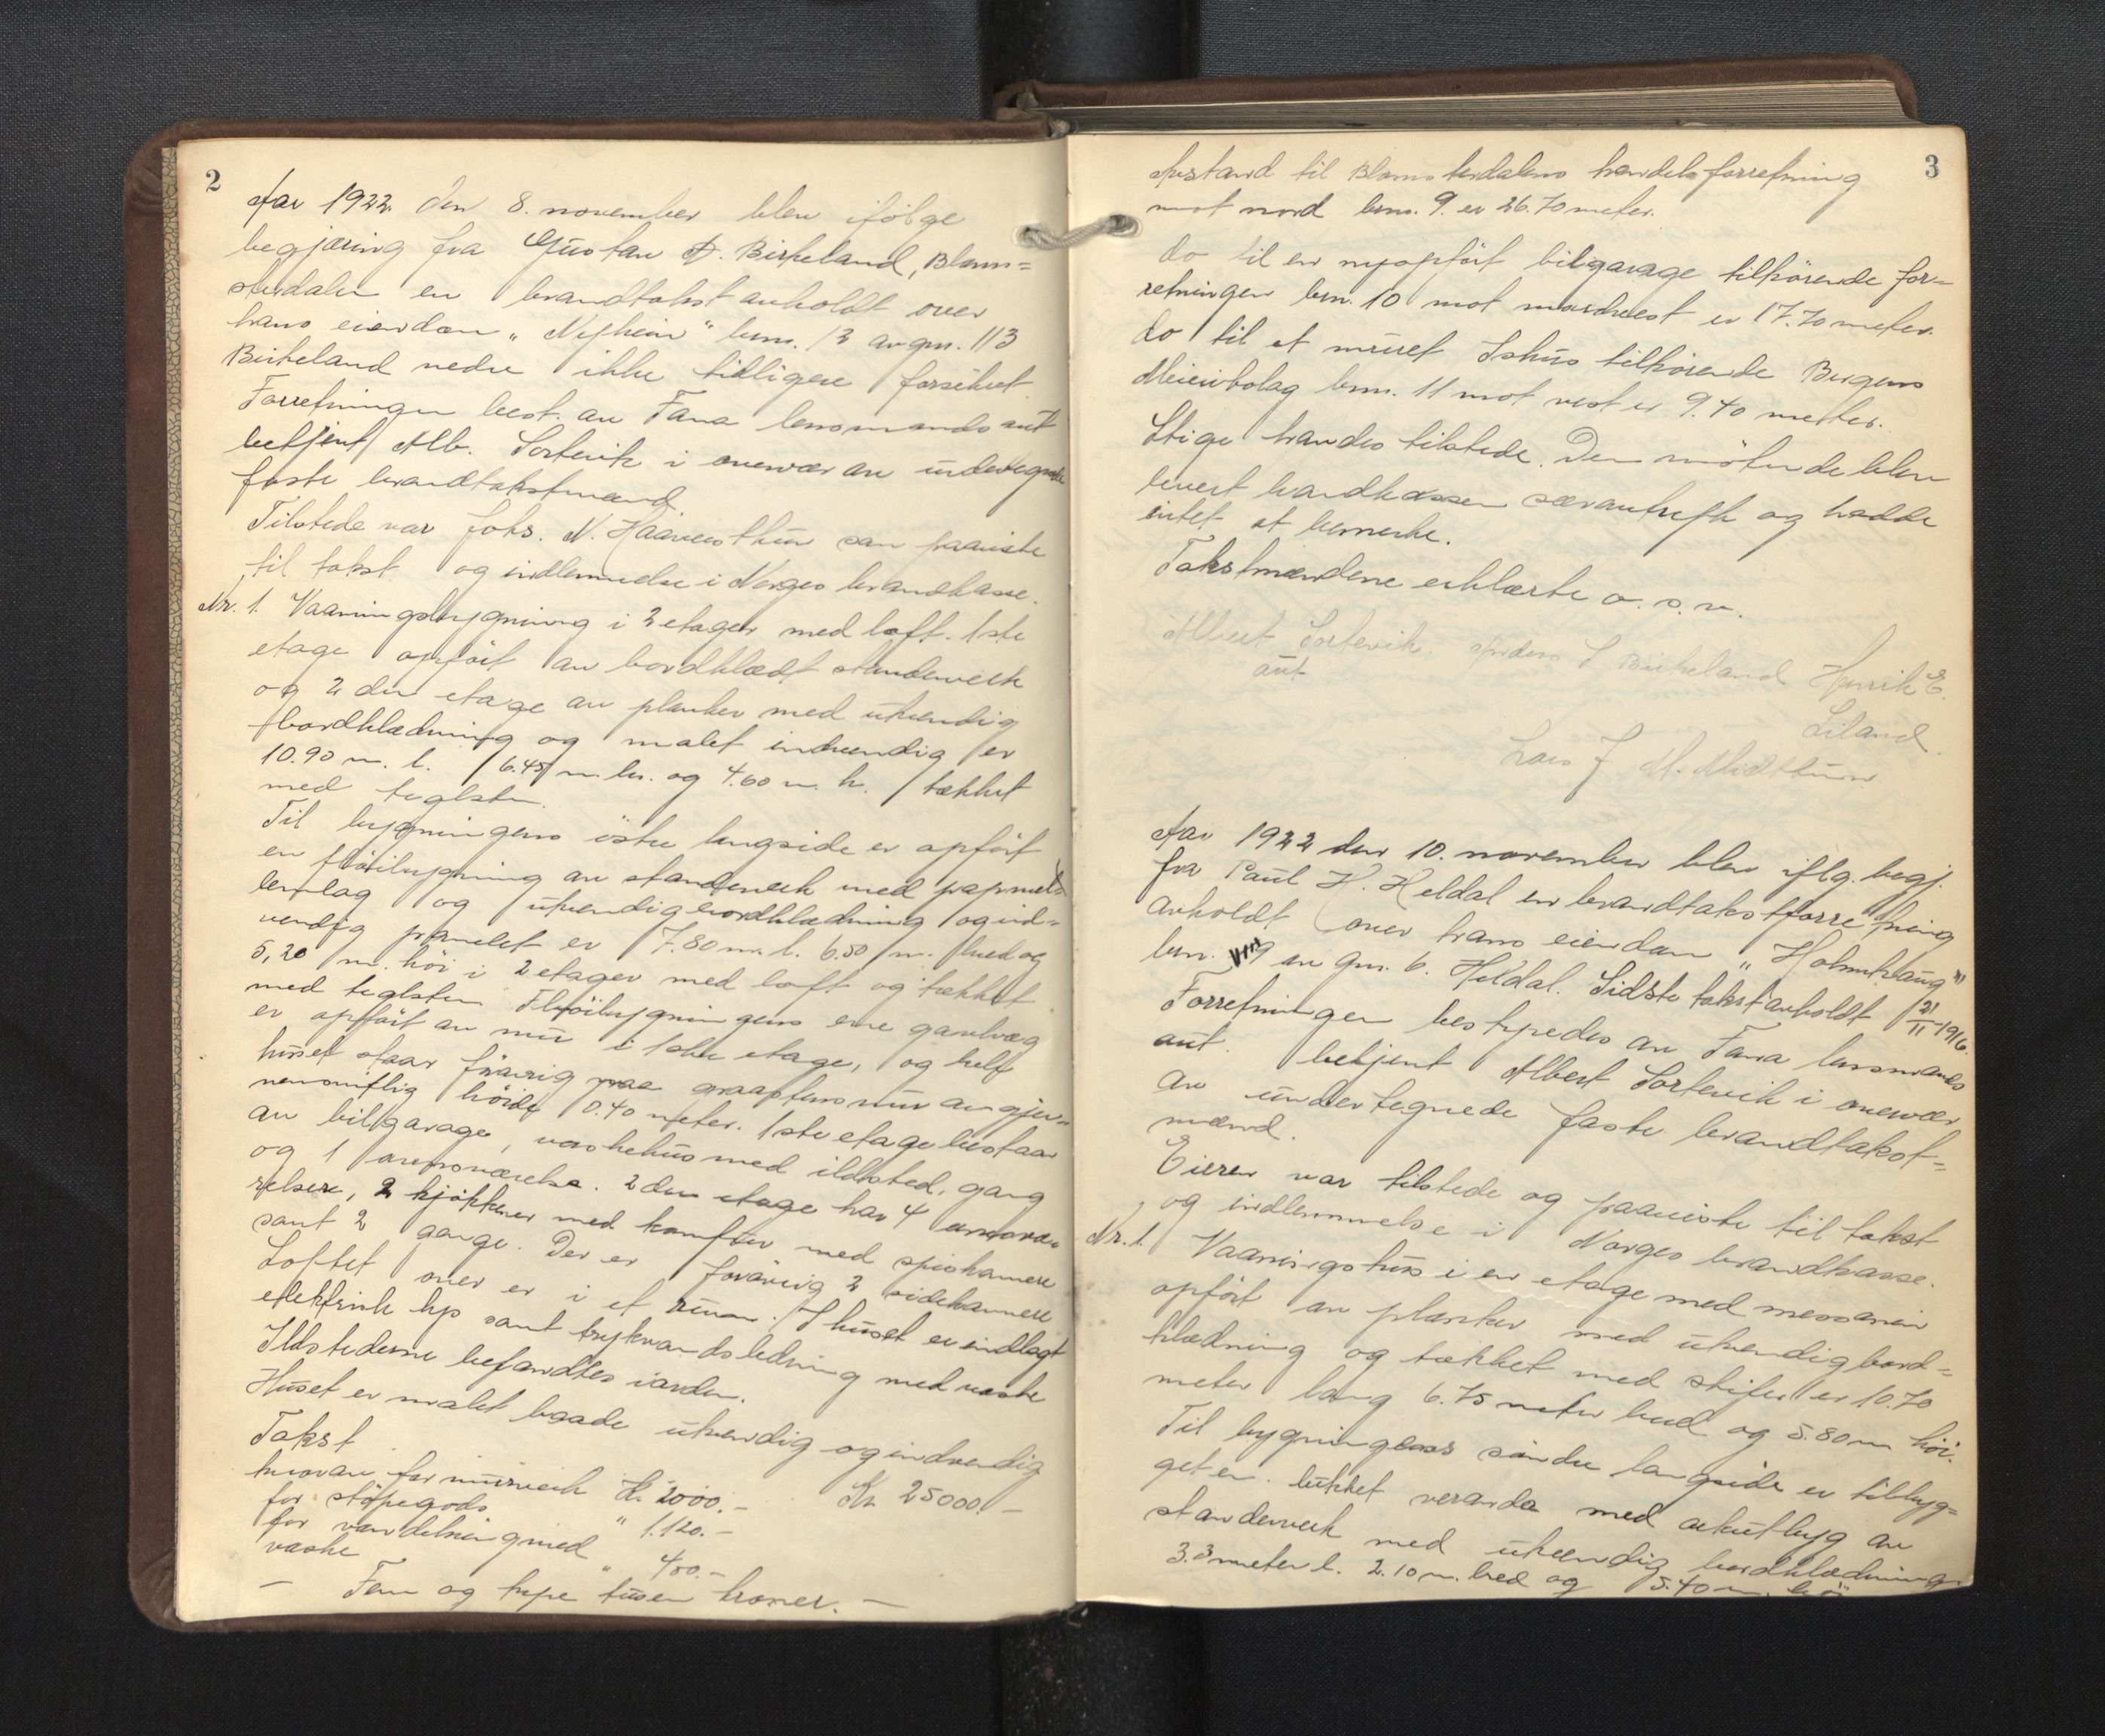 2
Aar 1922 den 8. november blev ifölge
begjæring fra Gustav A. Birkeland, Blom=
sterdalen en brandtakst avholdt over
hans eiendom "Nyheim" brn. 13 av gnr. 113
Birkeland nedre ikke tidligere forsikret.
Forretningen best. av Fana lensmands aut
betjent Alb. Sortevik i overvær av undertegnede
faste brandtakstmænd.
Tilstede var Johs. N. Haaversthun som paaviste
til takst og indlemmelse i Norges brandkasse.
Nr. 1. Vaaningsbygning i 2 etager med loft. 1ste
etage opfört av bordklædt stenderverk
og 2den etage av planker med utvendig
bordklædning og malet indvendig er
10.90 m. l. 6.45 m. br. og 4.60 m. h. tækket
med teglsten.
Til bygningens östre langside er opfört
en flöibygning av stenderverk med pap mel=
lemlag og utvendig bordklædning og ind=
vendig panelet er 7.80 m. l. 6.50 m. bred og
5,20 m. höi i 2 etager med loft og tækket
med teglsten. Flöibygningens ene gavlvæg
er opfört av mur i 1ste etage, og hele
huset staar forövrig paa graastensmur av gjen=
nemsnitlig höide 0.40 meter. 1ste etage bestaar
av bilgarage, vaskehus med ildsted, gang
og 1 arensværelse. 2den etage har 4 
relser, 2 kjökkener med komfur med spiskammer
samt 2 gange. Der er forövrig 2 sidekammere
Loftet over er i et rum. I huset er indlagt
elektrisk lys samt trykvandsledning med vaske
Ildstederne befandtes iorden.
Huset er malet baade utvendig og indvendig
Takst Kr 25000.-
hvorav for murverk Kr. 2000.-
for stöpegods " 1.120.-
for vandledning med
vaske " 400.-
- Fem og tyve tusen kroner. -
3
Avstand til Blomsterdalens handelsforretning
mot nord brn. 9. er 26.70 meter.
do til en nyopfört bilgarage tilhörende for=
retningen brn. 10 mot nordvest er 17.70 meter.
do til et muret Ishus tilhörende Bergens
Meieribolag brn. 11 mot vest er 9.40 meter.
Stige havdes tilstede. Den mötende blev
levert brandkassen særavtryk og hadde
intet at bemerke.
Takstmændene erklærte o. s. v.
Albert Sortevik. Anders L Birkeland Henrik E.
aut Liland.
Lars J M. Midttun.
Aar 1922 den 10. november blev iflg. begj.
fra Paul H. Heldal en brandtakstforretning
avholdt over hans eiendom "Holmhaug"
brn. 9 av gnr. 6. Heldal. Sidste takst avholdt 21/11-1916.
Forretningen bestyredes av Fana lensmands
aut. betjent Albert Sortevik i overvær
av undertegnede faste brandtakst=
mænd.
Eieren var tilstede og paaviste til takst
og indlemmelse i Norges brandkasse.
Nr. 1. Vaaningshus i en etage med messanin
opfört av planker med utvendig bord=
klædning og tækket med skifer er 10.70
meter lang 6.75 meter bred og 5.80 m höi.
Til bygningens söndre langside er tilbyg=
get en lukket veranda med arkutbyg av
stenderverk med utvendig bordklædning
3.3 meter l. 2.10 m. bred og 5.40 m. höi